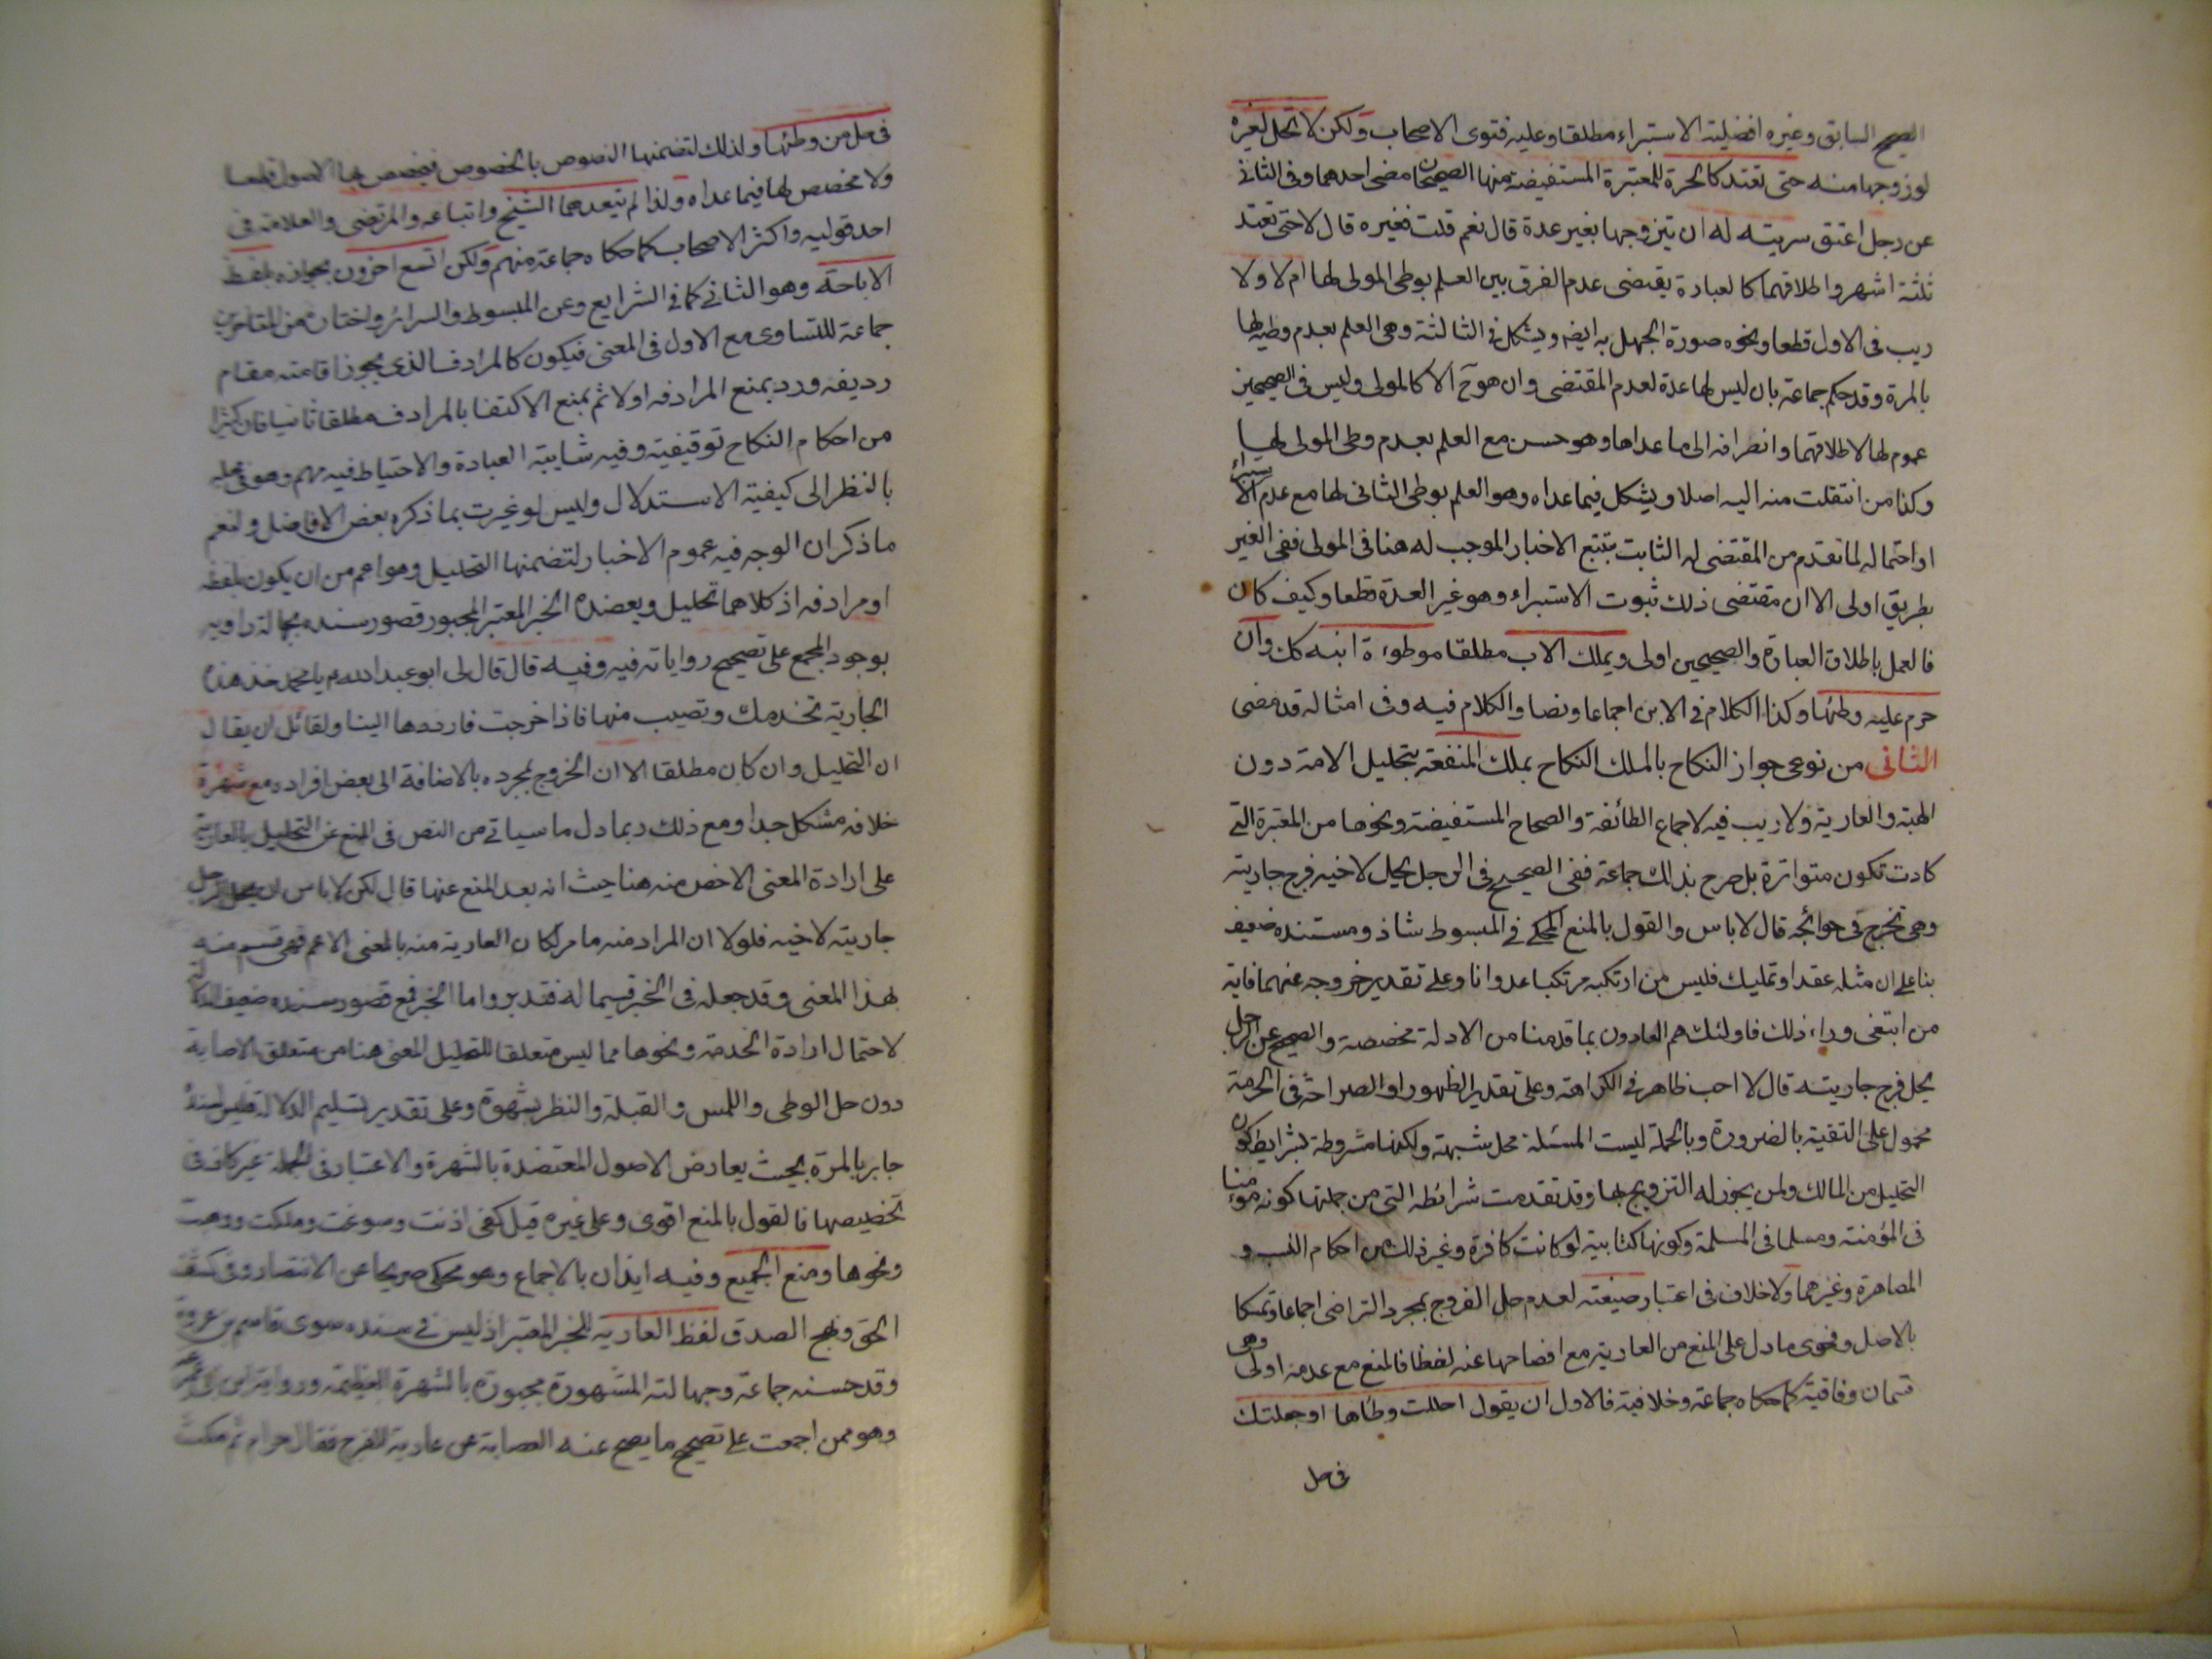 الصحيح السابق وغيره افضلية الاستبراء مطلقا وعليه فتوى الاصحاب ولكن لا تحل لغيره
لو زوجها منه حتى تعتد كالحرة للمعتبرة المستفيضة منها الصحيحان مضى احدهما وفى الثانى
عن رجل اعتق سريته له ان يتزوجها بغير عدة قال نعم قلت فغيره قال لا حتى تعتد
ثلثة اشهر واطلاقهما كالعبارة يقتضى عدم الفرق بين العلم بوطى المولى لها ام لا ولا
ريب فى الاول قطعا ونحوه صورة الجهل به ايضا ويشكل فى الثالثة وهى العلم بعدم وطيه لها
بالمرة وقد حكم جماعة بان ليس لها عدة لعدم المقتضى وان هو ح الا كالمولى وليس فى الصحيحين
عموم لها لاطلاقهما وانصرافه الى ما عداها وهو حسن مع العلم بعدم وطى المولى لها
وكذا من انتقلت منه اليه اصلا ويشكل فيما عداه وهو العلم بوطى الثانى لها مع عدم الاستبراء
او احتماله لما تقدم من المقتضى له الثابت بتتبع الاخبار الموجب له هنا فى المولى ففى الغير
بطريق اولى الا ان مقتضى ذلك ثبوت الاستبراء وهو غير العدة قطعا وكيف كان
فالعمل باطلاق العبارة والصحيحين اولى ويملك الاب مطلقا موطوءة ابنه كك وان
حرم عليه وطئها وكذا الكلام فى الابن اجماعا ونصا والكلام فيه وفى امثاله قد مضى
الثانى من نوعى جواز النكاح بالملك النكاح بملك المنفعة بتحليل الامة دون
الهبة والعارية ولا ريب فيه لاجماع الطائفة والصحاح المستفيضة ونحوها من المعتبرة التى
كادت تكون متواترة بل صرح بذلك جماعة ففى الصحيح فى الرجل يحل لاخيه فرج جاريته
وهى تخرج فى حوائجه قال لا باس والقول بالمنع المحكى فى المبسوط شاذ ومستنده ضعيف
بنا على ان مثله عقد او تمليك فليس من ارتكبه مرتكبا عدوانا وعلى تقدير خروجه عنهما فاية
من ابتغى وراء ذلك فاولئك هم العادون بما قدمنا من الادلة مخصصة والصحيح عن الرجل
يحل فرج جاريته قال لا احب ظاهر فى الكراهة وعلى تقدير الظهور او الصراحة فى الحرمة
محمول على التقية بالضرورة وبالجملة ليست المسئلة محل شبهة ولكنها مشروطة بشرايط كون
التحليل من المالك ولمن يجوز له التزويج بها وقد تقدمت شرائطه التى من جملتها كونه مومنا
فى المؤمنة ومسلما فى المسلمة وكونها كتابية لو كانت كافرة وغير ذلك من احكام النسب و
المصاهرة وغيرهما ولا خلاف فى اعتبار صيغته لعدم حل الفروج بمجرد التراضى اجماعا وتمسكا
بالاصل وفحوى ما دل على المنع من العارية مع افصاحها عنه لفظا فالمنع مع عدمه اولى وهى
قسمان وفاقية كما حكاه جماعة وخلافية فالاول ان يقول احللت وطئها او جعلتك
فى حل
فى حل من وطئها ولذلك لتضمنها النصوص بالخصوص فيخصص بها الاصول قطعا
ولا مخصص لها فيما عداه ولذا لم يتعدهما الشيخ واتباعه والمرتضى والعلامة فى
احد قوليه واكثر الاصحاب كما حكاه جماعة منهم ولكن اتسع اخرون بجوازه بلفظ
الاباحة وهو الثانى كما فى الشرايع وعن المبسوط والسرائر واختاره من المتاخرين
جماعة للتساوى مع الاول فى المعنى فيكون كالمرادف الذى يجوز اقامته مقام
رديفه ورد بمنع المرادفه اولا ثم بمنع الاكتفا بالمرادف مطلقا ثانيا فان كثيرا
من احكام النكاح توقيفية وفيه شايبة العبادة والاحتياط فيه مهم وهو فى محله
بالنظر الى كيفية الاستدلال وليس لو غيرت بما ذكره بعض الافاضل ولنعم
ما ذكر ان الوجه فيه عموم الاخبار لتضمنها التحليل وهو اعم من ان يكون بلفظه
او مرادفه اذ كلاهما تحليل ويعضده الخبر المعتبر المجبور قصور سنده بجهالة راويه
بوجود المجمع على تصحيح رواياته فيه وفيه قال قال لى ابو عبد الله م يا محمد خذ هذه
الجارية تخدمك وتصيب منها فاذا خرجت فارددها الينا ولقائل ان يقال
ان التحليل وان كان مطلقا الا ان الخروج بمجرده بالاضافة الى بعض افراده مع شهرة
خلافه مشكل جدا ومع ذلك ربما دل ما سياتى من النص فى المنع عن التحليل بالعارية
على ارادة المعنى الاخص منه هنا حيث انه بعد المنع عنها قال لكن لا باس ان يحل الرجل
جاريته لاخيه فلولا ان المراد منه ما مر لكان العارية منه بالمعنى الاعم فهى قسم منه
بهذا المعنى وقد جعله فى الخبر قسيما له فتدبر واما الخبر فمع قصور سنده ضعيف الدلالة
لاحتمال ارادة الخدمة ونحوها مما ليس متعلقا للتحليل المعنى هنا من متعلق الاصابة
دون حل الوطى واللمس والقبلة والنظر بشهوة وعلى تقدير تسليم الدلالة فليس لسنده
جابر بالمرة بحيث يعارض الاصول المعتضدة بالشهرة والاعتبار فى الجملة غير كاف فى
تخصيصها فالقول بالمنع اقوى وعلى غيره قيل كفى اذنت وسوغت وملكت ووهبت
ونحوها ومنع الجميع وفيه ايذان بالاجماع وهو محكى صريحا عن الانتصار وفى كشف
الحق ونهج الصدق لفظ العاريه للخبر المعتبر اذ ليس فى سنده سوى قاسم بن عروة
وقد حسنه جماعة وجهالته المشهورة مجبورة بالشهرة العظيمة ورواية ابن ابى عمير عنه
وهو ممن اجمعت على تصحيح ما يصح عنه العصابة عن عارية الفرج فقال حرام ثم مكث